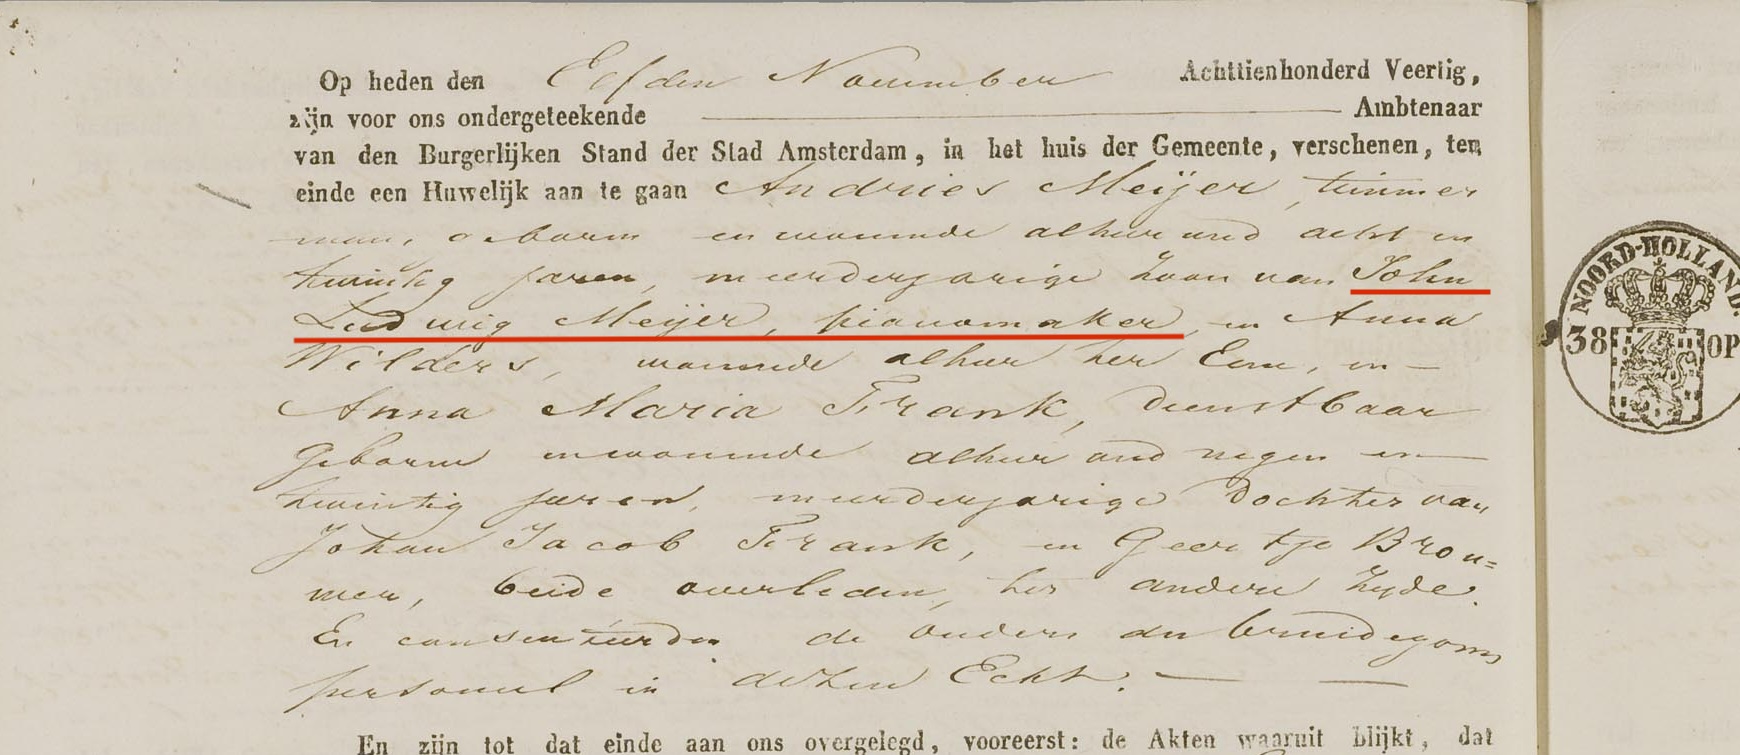 Op heden den Elfden November Achttienhonderd Veertig,
zijn voor ons ondergeteekende Ambtenaar
van den Burgerlijken Stand der Stad Amsterdam, in het huis der Gemeente, verschenen, ten
einde een Huwelijk aan te gaan Andries Meijer, timmer
man, geboren en wonende alhier oud acht en
twintig jaren, meerderjarige zoon van John
Ludwig Meijer, pianomaker, en Anna
Wilders, wonende alhier ter Eene, en
Anna Maria Frank, Dienstbaar
geboren en wonende alhier oud negen en
twintig jaren, meerderjarige Dochter van
Johan Jacob Frank, en Geertje Brou=
wer, beide overleden, ter andere zyde.
En consenteerden de ouders des bruidegoms
personeel in dezen Echt.
En zijn tot dat einde aan ons overgelegd, vooreerst: de Akten waaruit blijkt, dat
NOORD-HOLLAND.
38 OP